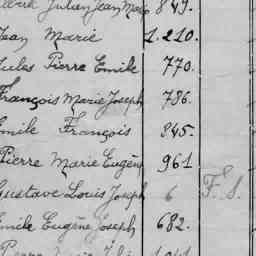 Julien Jean Marie 849.
Jean Marie 1.210.
Jules Pierre Emile 770.
François Marie Joseph 786.
Emile François 845.
Pierre Marie Eugène 961
Gustave Louis Joseph 6 F. S.
Emile Eugène Joseph 682.
Pierre